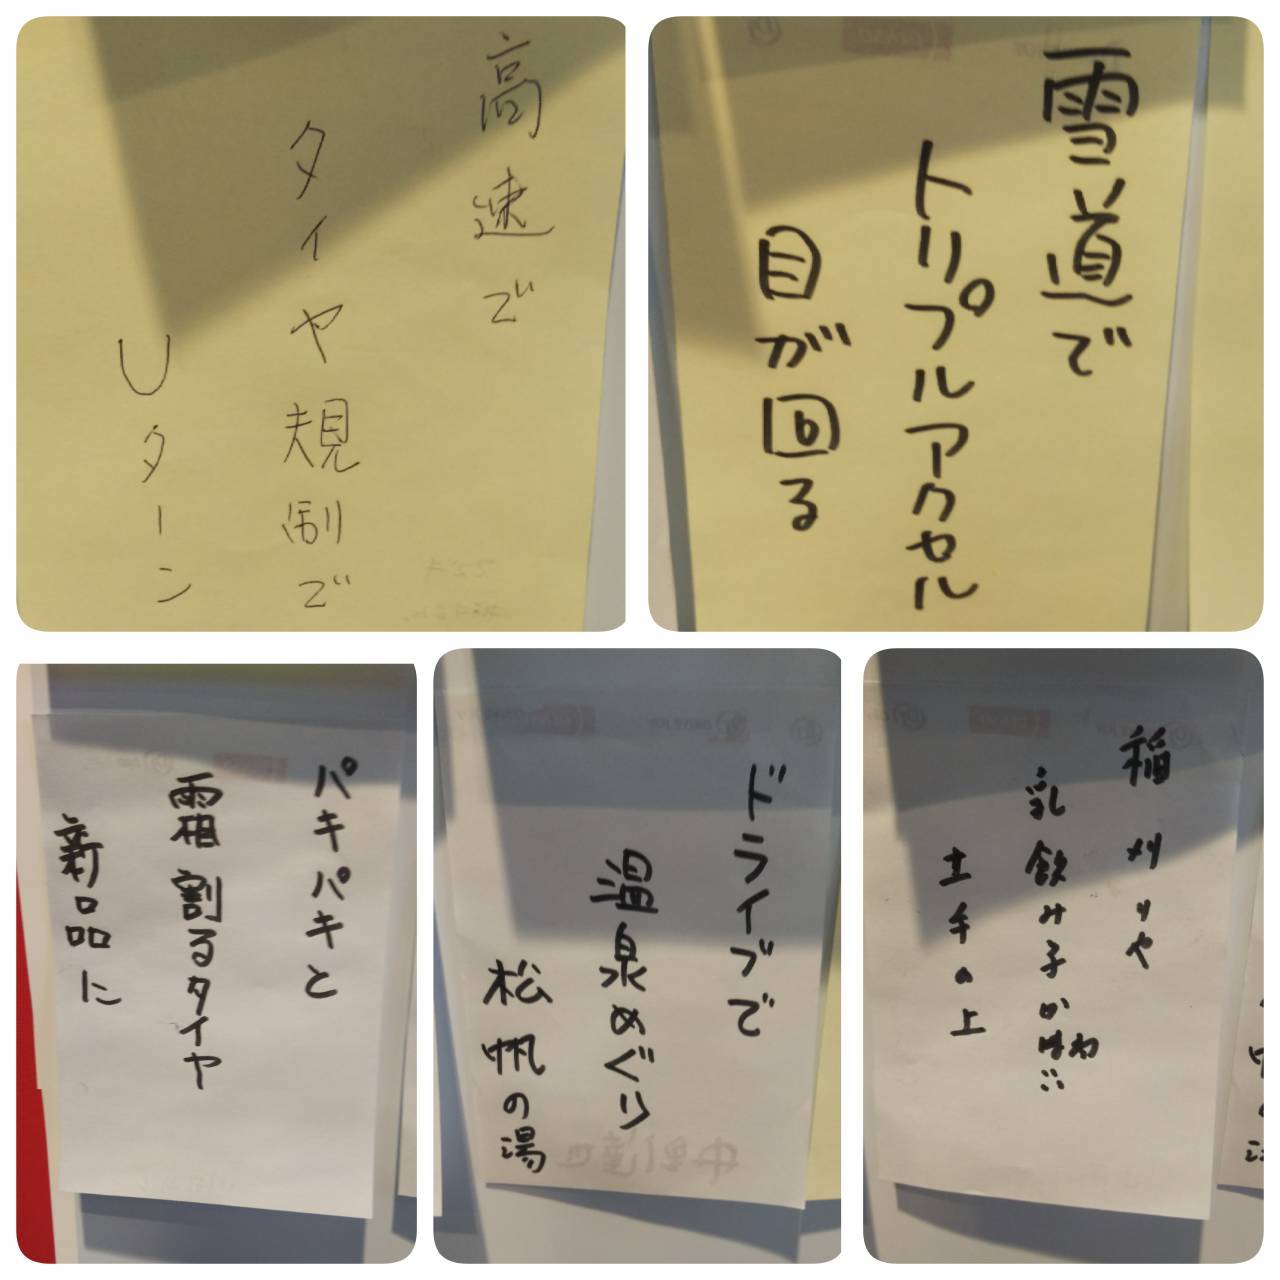 高速で
タイヤ規制で
Uターン
雪道で
トリプルアクセル
目が回る
パキパキと
霜割るタイヤ
新品に
ドライブで
温泉めぐり
松帆の湯
稲刈りや
乳飲み子かばい
土手の上